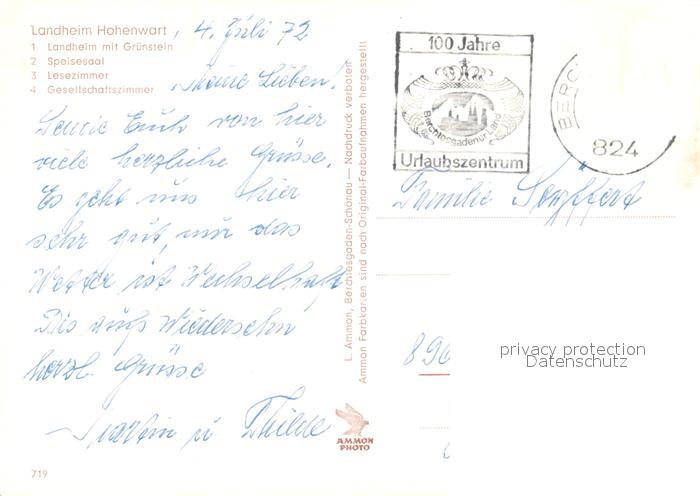 Landheim Hohenwart
1 Landheim mit Grünstein
2 Speisesaal
3 Lesezimmer
4 Gesellschaftszimmer
4. Juli 72
Meine Lieben!
Sende Euch von hier
viele herzliche Grüsse.
Es geht uns hier
sehr gut, nur das
Wetter ist Wechselhaft
Bis aufs Wiedersehn
herzl. Grüsse
Martin u Thilde
719
L. Ammon, Berchtesgaden-Schönau — Nachdruck verboten
Ammon Farbkarten sind nach Original-Farbaufnahmen hergestellt
AMMON
PHOTO
100 Jahre
Berchtesgadener Land
Urlaubszentrum
BERC
824
Familie Seyffert
896
privacy protection
Datenschutz